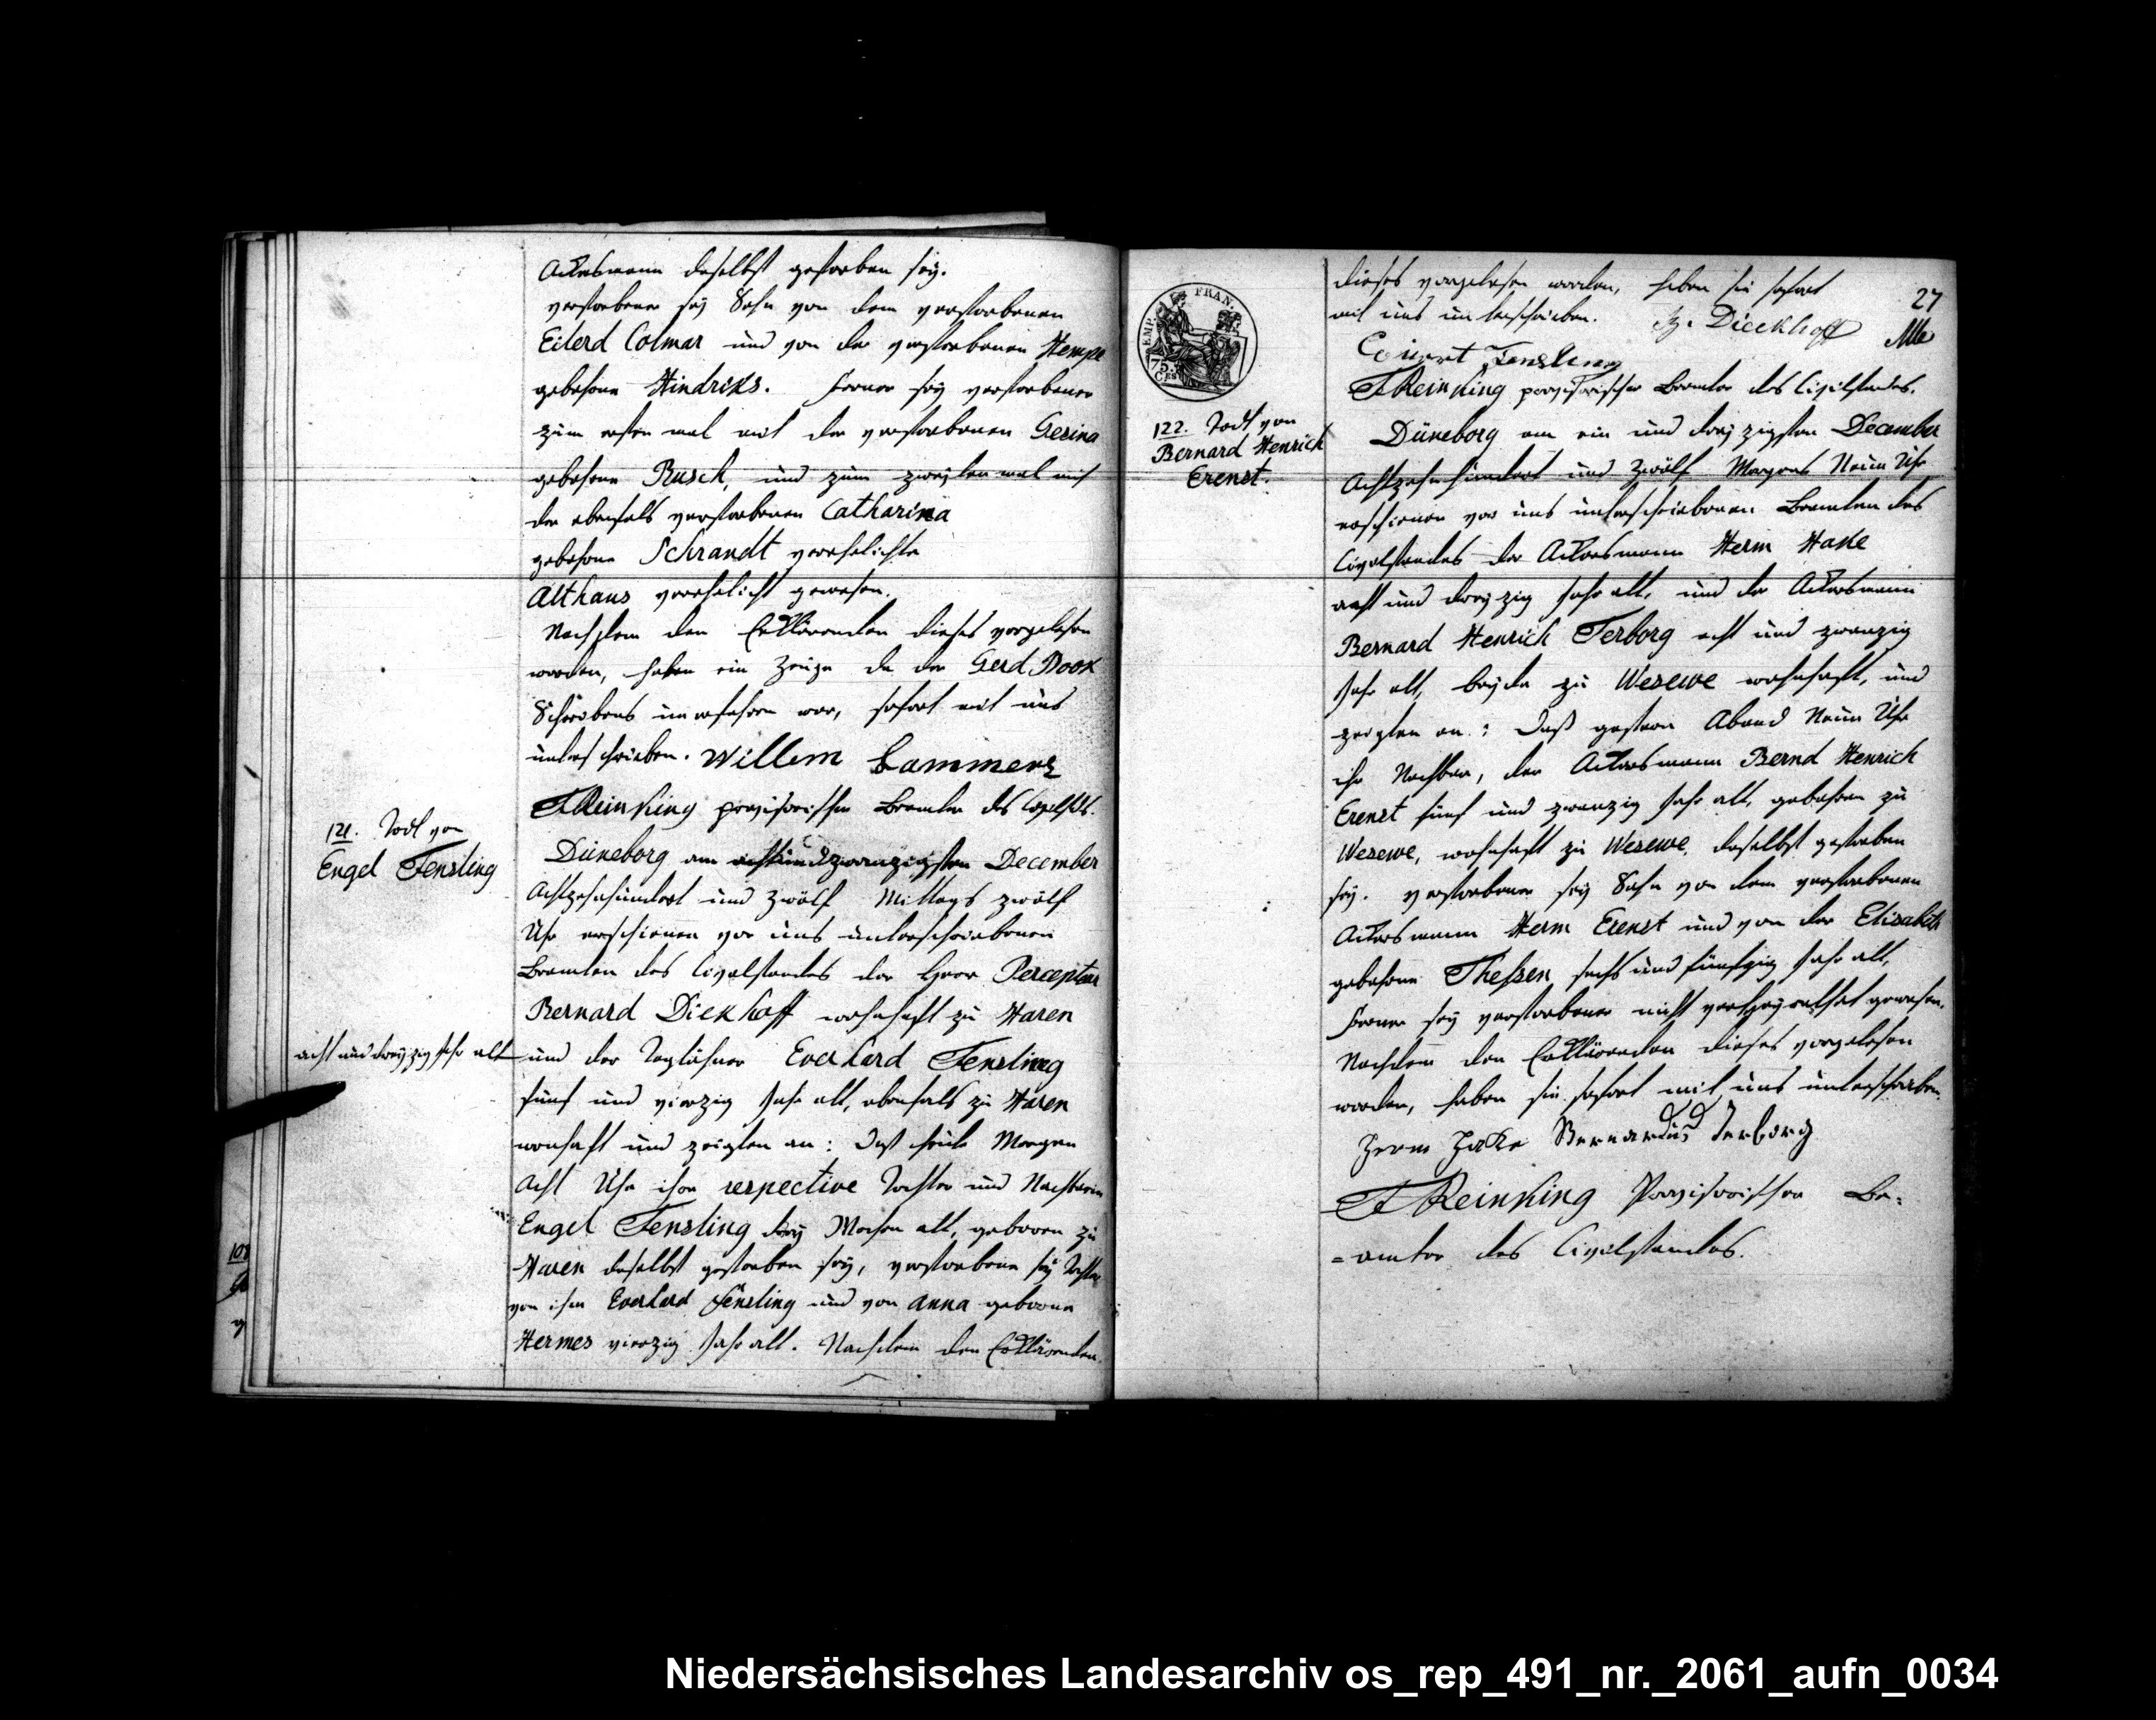 Ackersmann daselbst gestorben sey.
verstorbener sey Sohn von dem verstorbenen
Eilerd Colmar und von der verstorbenen Hempe
gebohrne Hindriks. ferner sey verstorbener
zum ersten mal mit der verstorbenen Gesina
gebohrne Rusch, und zum zweyten mal mit
der ebenfals verstorbenen Catharina
gebohrne Schrandt verehelichte
Althaus verehelicht gewesen.
Nachdem den Erklärenden dieses vorgelesen
worden, haben ein Zeuge da der Gerd Book
Schreibens unerfahren war, sofort mit uns
unterschrieben. Willem Lammers
Reinking provisorischer Beamter des
121. Todt von
Engel Fensling
Düneborg am achtundzwanzigsten December
Achtzehnhundert und Zwölf Mittags zwölf
Uhr erschienen vor uns unterschriebenen
Beamten des Civilstandes der Herr Percepteur
Bernard Diekhoff wohnhaft zu Haren
acht und dreyzig Jahr alt
und der Taglöhner Everhard Fensling
fünf und vierzig Jahr alt, ebenfals zu Haren
wonhaft und zeigten an: Daß heute Morgen
Acht Uhr ihre respective Tochter und Nachbarin
Engel Fensling drey Wochen alt, geboren zu
Haren daselbst gestorben sey, verstorbene sey Tochter
von ihm Everhard Fensling und von Anna geborne
Hermes vierzig Jahr alt. Nachdem den Erklärenden
27
dieses vorgelesen worden, haben sie sofort
mit uns unterschrieben. Dieckhoff
Fensling
Reinking provisorischer Beamter des Civilstandes.
EMP. FRAN.
75. Ces
122. Todt von
Bernard Henrich
Erenst.
Düneborg am ein und dreyzigsten December
Achtzehnhundert und Zwölf Morgens Neun Uhr
erschienen vor uns unterschriebenen Beamten des
Civilstandes der Ackersmann Herm Hake
acht und dreyzig Jahr alt, und der Ackersmann
Bernard Henrich Terborg acht und zwanzig
Jahr alt, beyde zu Wesewe wohnhaft, und
zeigten an: Daß gestern Abend Neun Uhr
ihr Nachbar, der Ackersmann Bernd Henrich
Erenst fünf und zwanzig Jahr alt, gebohren zu
Wesewe, wohnhaft zu Wesewe, daselbst gestorben
sey. verstorbener sey Sohn von dem verstorbenen
Ackersmann Herm Erenst und von der Elisabeth
gebohrne Theßen sechs und fünfzig Jahr alt,
ferner sey verstorbener nicht verheyrathet gewesen.
Nachdem den Erklärenden dieses vorgelesen
worden, haben sie sofort mit uns unterschrieben.
Herm Hake Bernardus Terborg
Reinking Provisorischer Be=
=amter des Civilstandes.
Niedersächsisches Landesarchiv os_rep_491_nr._2061_aufn_0034